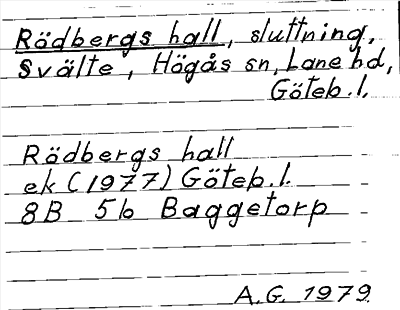 Rödbergs hall, sluttning,
Svälte, Högås sn, Lane hd,
Göteb.l.
Rödbergs hall
ek (1977) Göteb.l.
8B 5b Baggetorp
A.G. 1979.